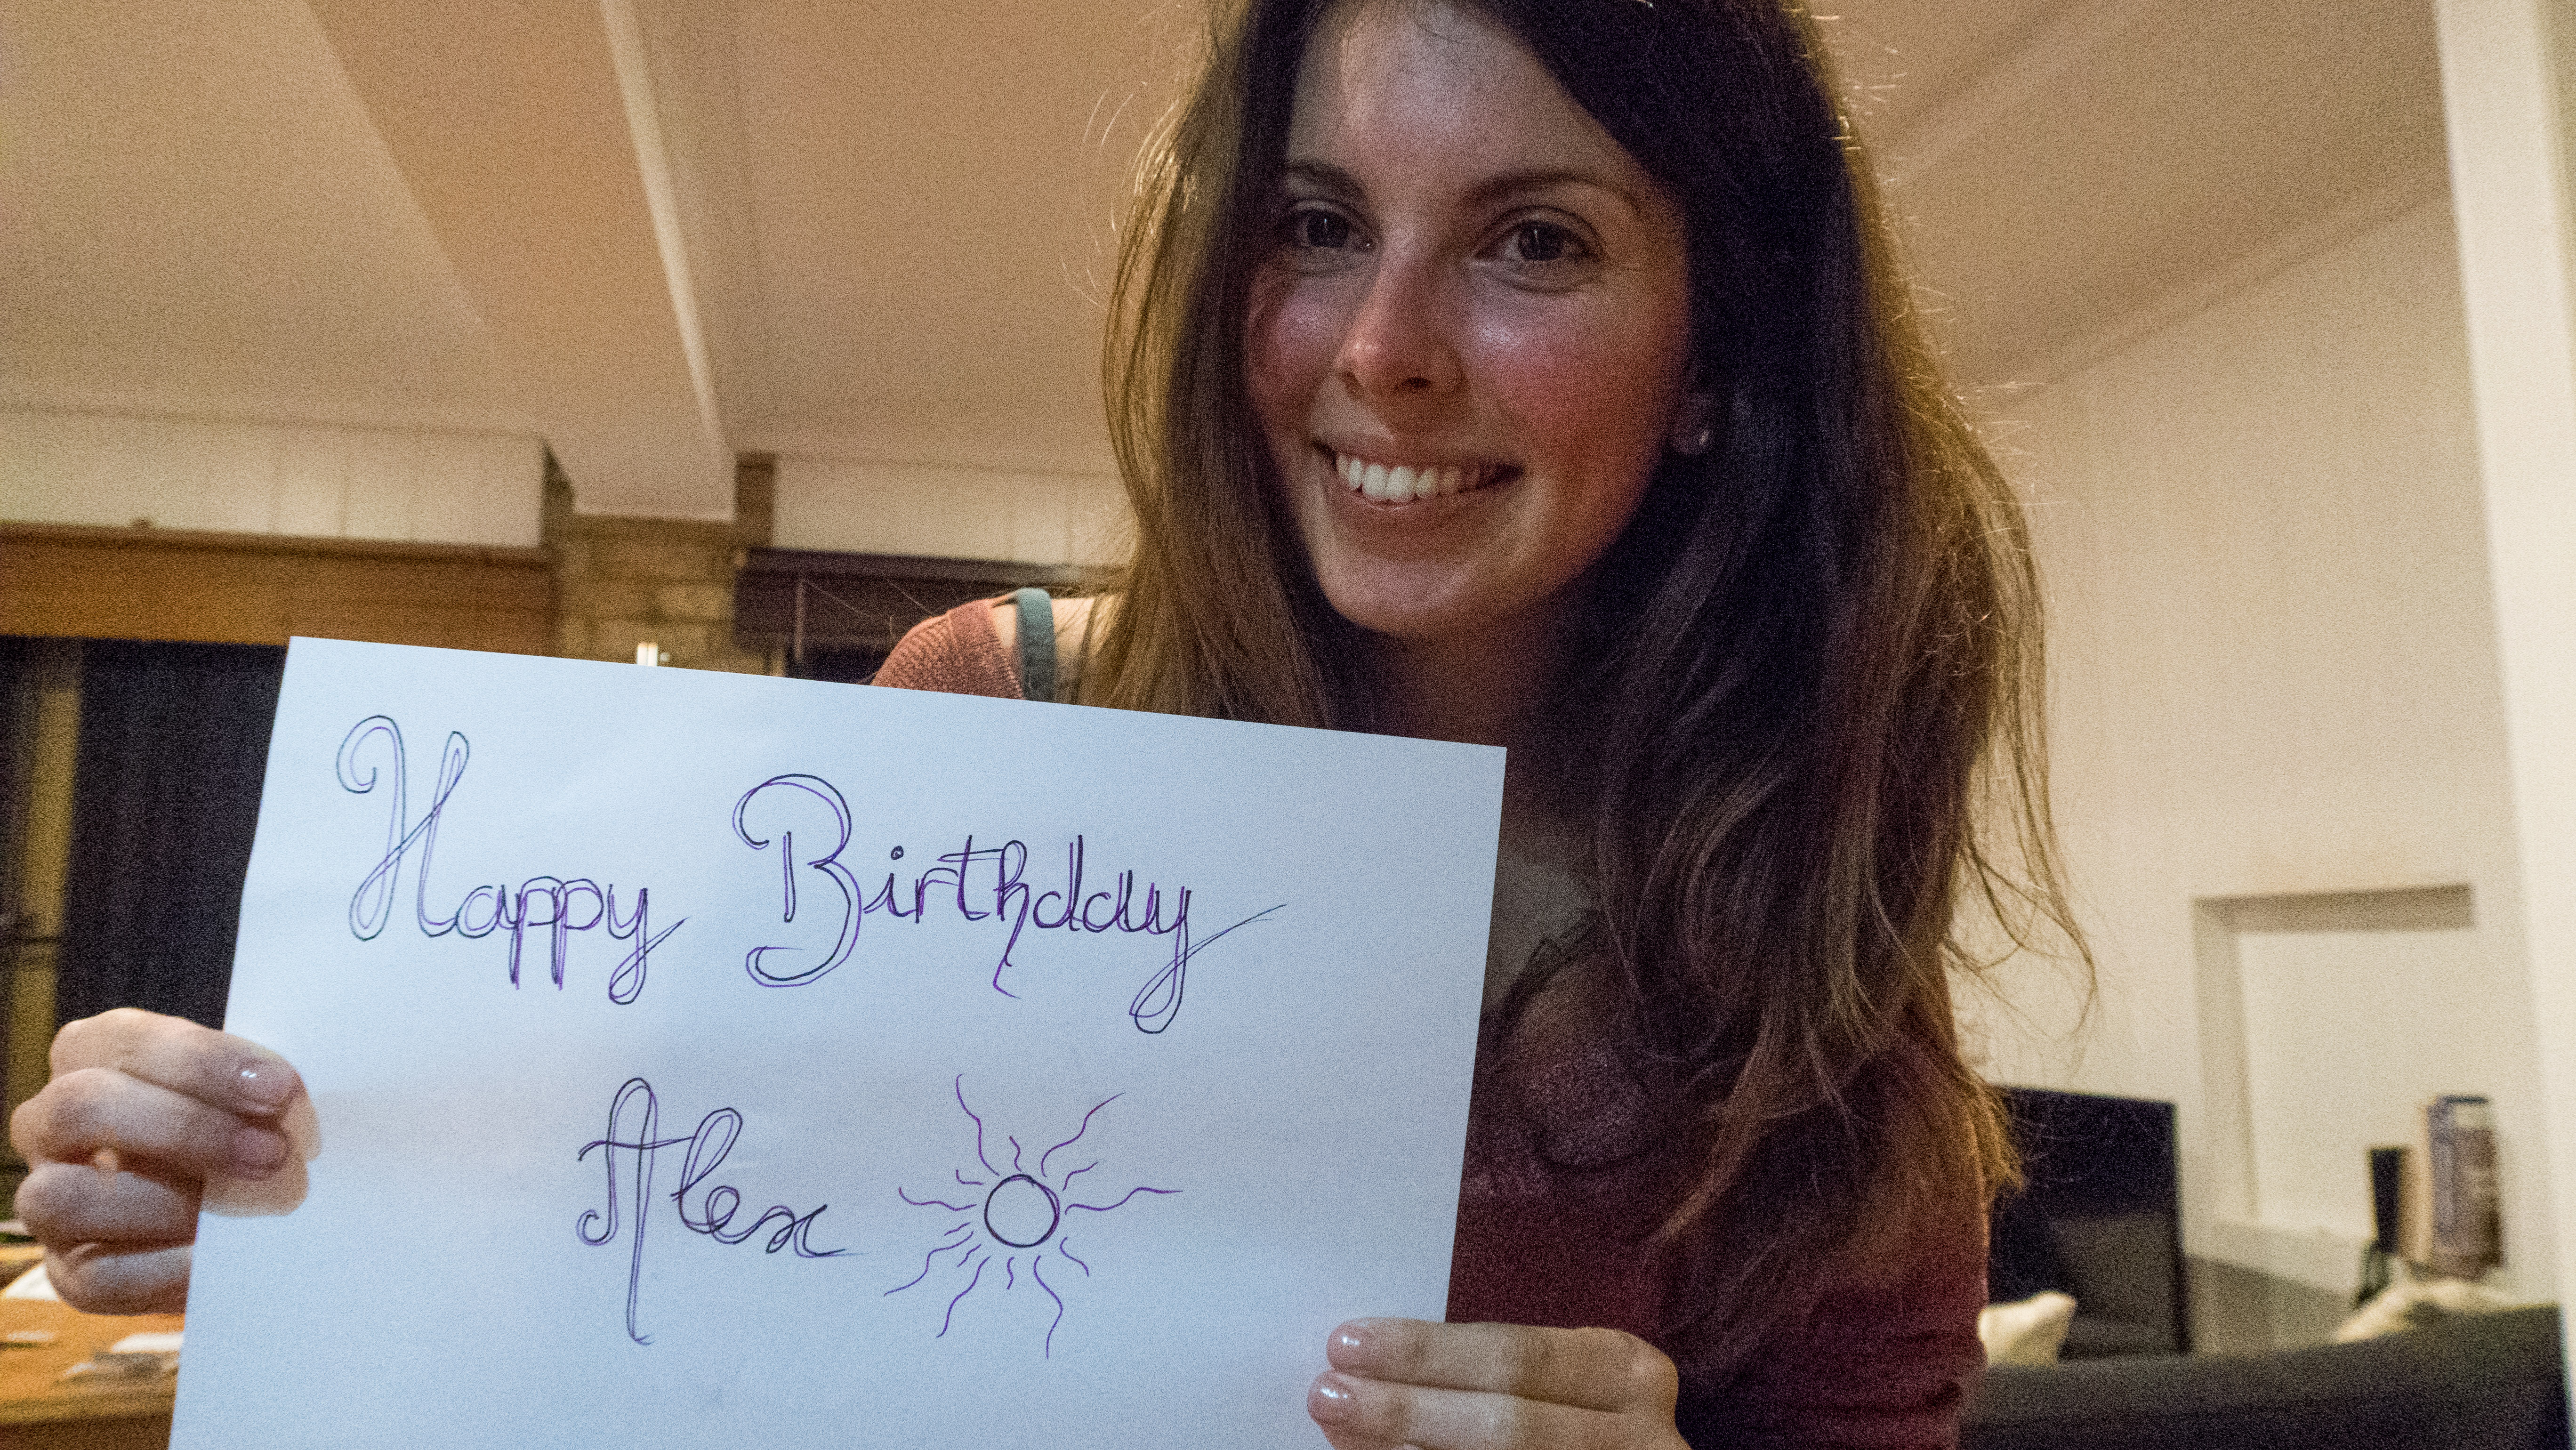 Happy Birthday
Alex